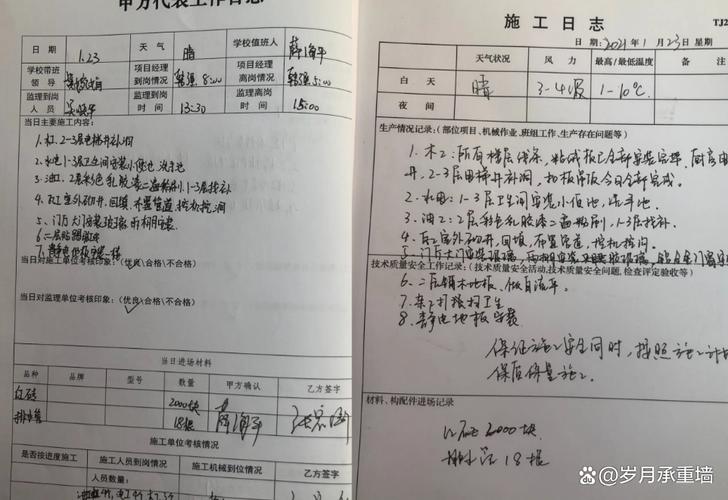 甲方代表工作日志
日期 1.23 天气 晴 学校值班人
学校带班领导 项目经理到岗情况 8:00 项目经理离岗情况 5:00
监理到岗人员 监理到岗时间 13:30 监理离岗时间 15:00
当日主要施工内容:
1.木工、2-3层电梯井补洞
2.水电1-3层卫生间安装小便池、洗手池
3.油工、2层彩色乳胶漆二遍粉刷、1-3层找补
4.瓦工室外砌井、回填、布置管道、挖机挖沟
5.门厅大门安装玻璃
6.二层贴踢脚线
当日对施工单位考核印象:(优良/合格/不合格)
当日对监理单位考核印象:(优良/合格/不合格)
当日进场材料
品种 品牌 型号 数量 甲方确认 乙方签字
红砖 2000块
排水管 18根
施工单位考核情况
是否按进度施工 施工人员到岗情况 施工机械到位情况 乙方签字
人员数量:
施工日志 TJ2
日期:2021年1月23日星期
天气状况 风力 最高/最低温度 备注
白天 晴 3-4级 1-10℃
夜间
生产情况记录:(部位项目、机械作业、班组工作、生产存在问题等)
1.木工:所有楼层线条,粘成板已全部安装完毕,厨房电
井、2-3层电梯井补洞,扣板吊板今日全部完成。
2.水电:1-3层卫生间安装小便池,洗手池
3.油工:2层彩色乳胶漆二遍粉刷,1-3层找补。
4.瓦工室外砌井,回填,布置管道,挖机挖沟
5.门厅大门安装玻璃
技术质量安全工作记录:(技术质量安全活动,技术质量安全问题,检查评定验收等)
6.二层铺木地板、做自流平。
7.杂工打扫卫生
8.静电地板安装
保证施工安全同时,按照施工计划
保质保量施工。
材料、构配件进场记录
红砖2000块
排水管18根
@岁月承重墙